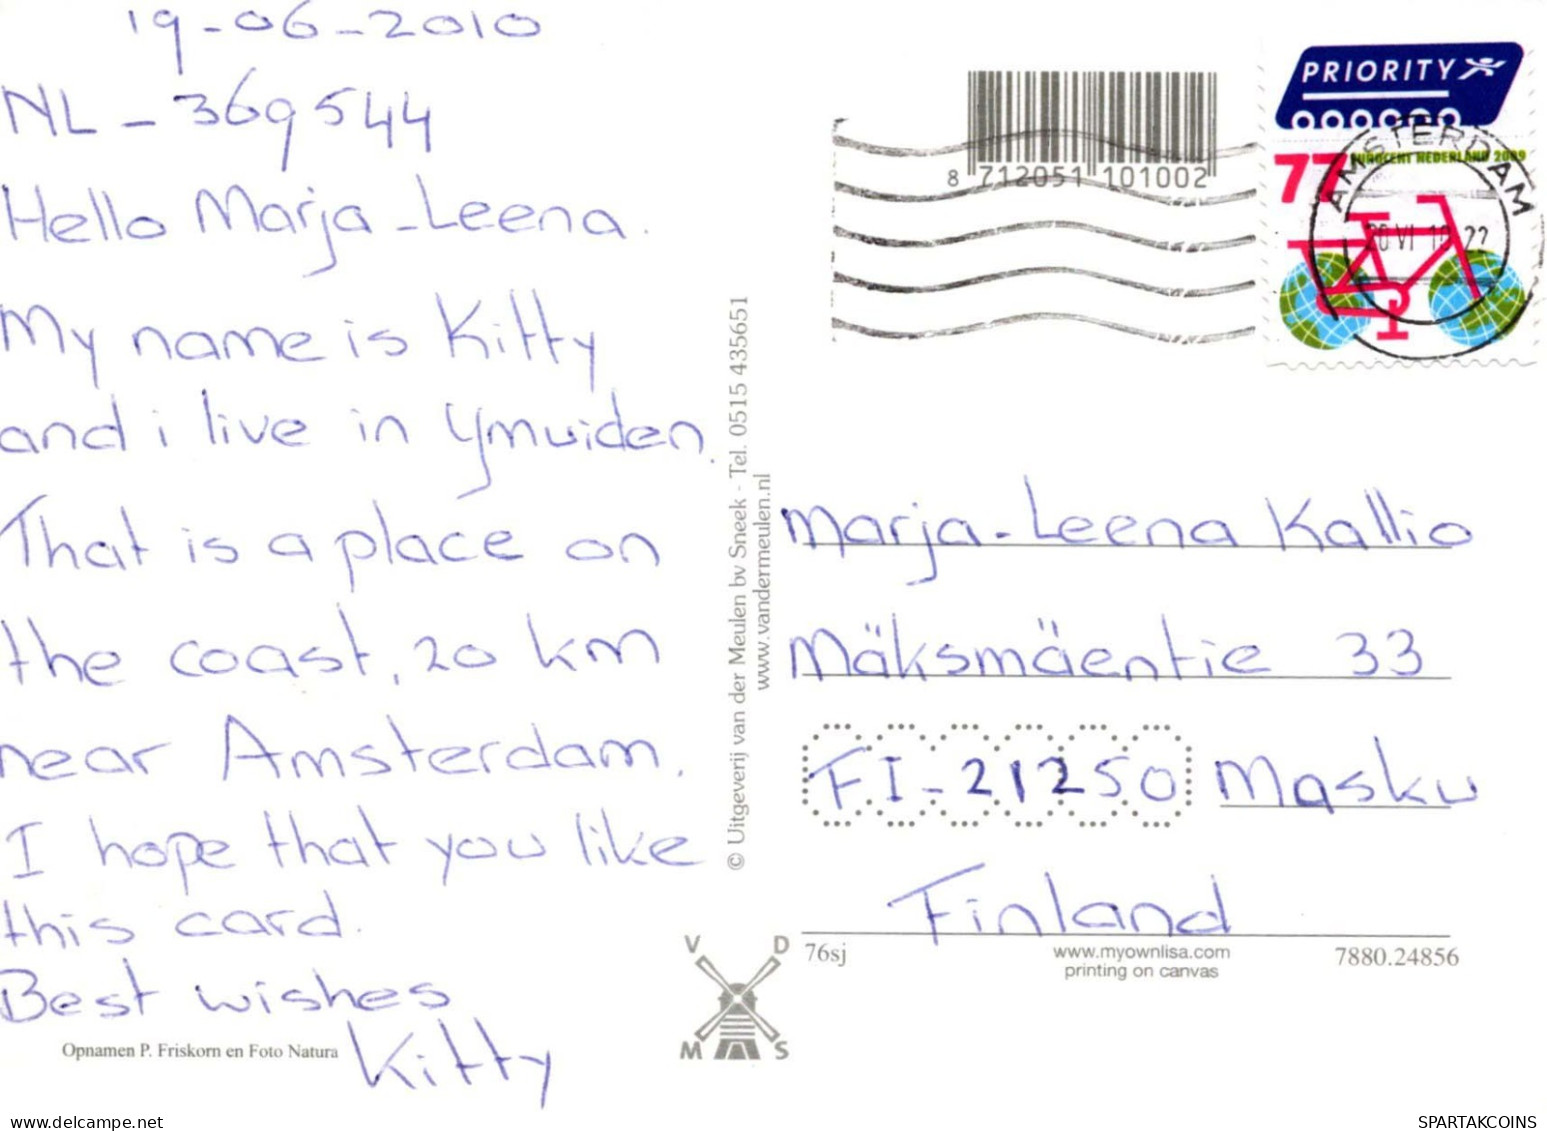 19-06-2010
NL-369544
Hello Marja-Leena.
My name is Kitty
and i live in Ymuiden.
That is a place on
the coast, 20 km
near Amsterdam.
I hope that you like
this card.
Best wishes
Kitty
Opnamen P. Friskorn en Foto Natura
© Uitgeverij van der Meulen bv Sneek - Tel. 0515 435651
www.vandermeulen.nl
V D
M S
8 712051 101002
PRIORITY
77 EUROCENT NEDERLAND 2009
AMSTERDAM
20 VI 10 22
Marja-Leena Kallio
Mäksmäentie 33
FI-21250 Masku
Finland
76sj
www.myownlisa.com
printing on canvas
7880.24856
delcampe.net
SPARTAKCOINS